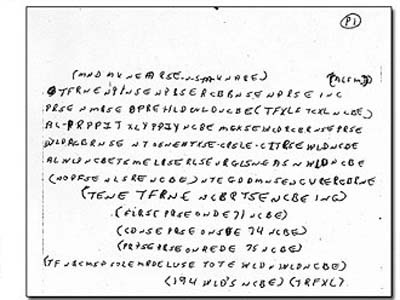 P1
(MND MKNEARSE-N-S-M-KNARE) (ACSM)
TFRNENPINSENPBSERCBBRNSENPRSEINC
PRSENMRSEOPREHLDWLDNCBE(TFXLFTCXLNCBE)
AL-PRPPIT XLYPPIYNCBE MGKSEWLDRCBRNSEPRSE
WLDRCBRNSE NTSGNENTXSE-CRSLE-CITRSEWLDNCBE
ALWLDNCBETSMELRSERLSEURGLSNEASNWLDNCBE
(NOPFSENLSRENCBE) NTEGDDMNSENCURERCBRNE
(TENE TFRNE NCBRTSENCBE INC)
(FLRSE PRSE ONDE 71 NCBE)
(CDNSE PRSE ONSDE 74 NCBE)
(PRTSE PRSE ONREDE 75 NCBE)
(TFNBCMSPSOLEMRDELUSE TOTE WLDN WLDNCBE)
(194 WLD'S NCBE) (TRFXL)